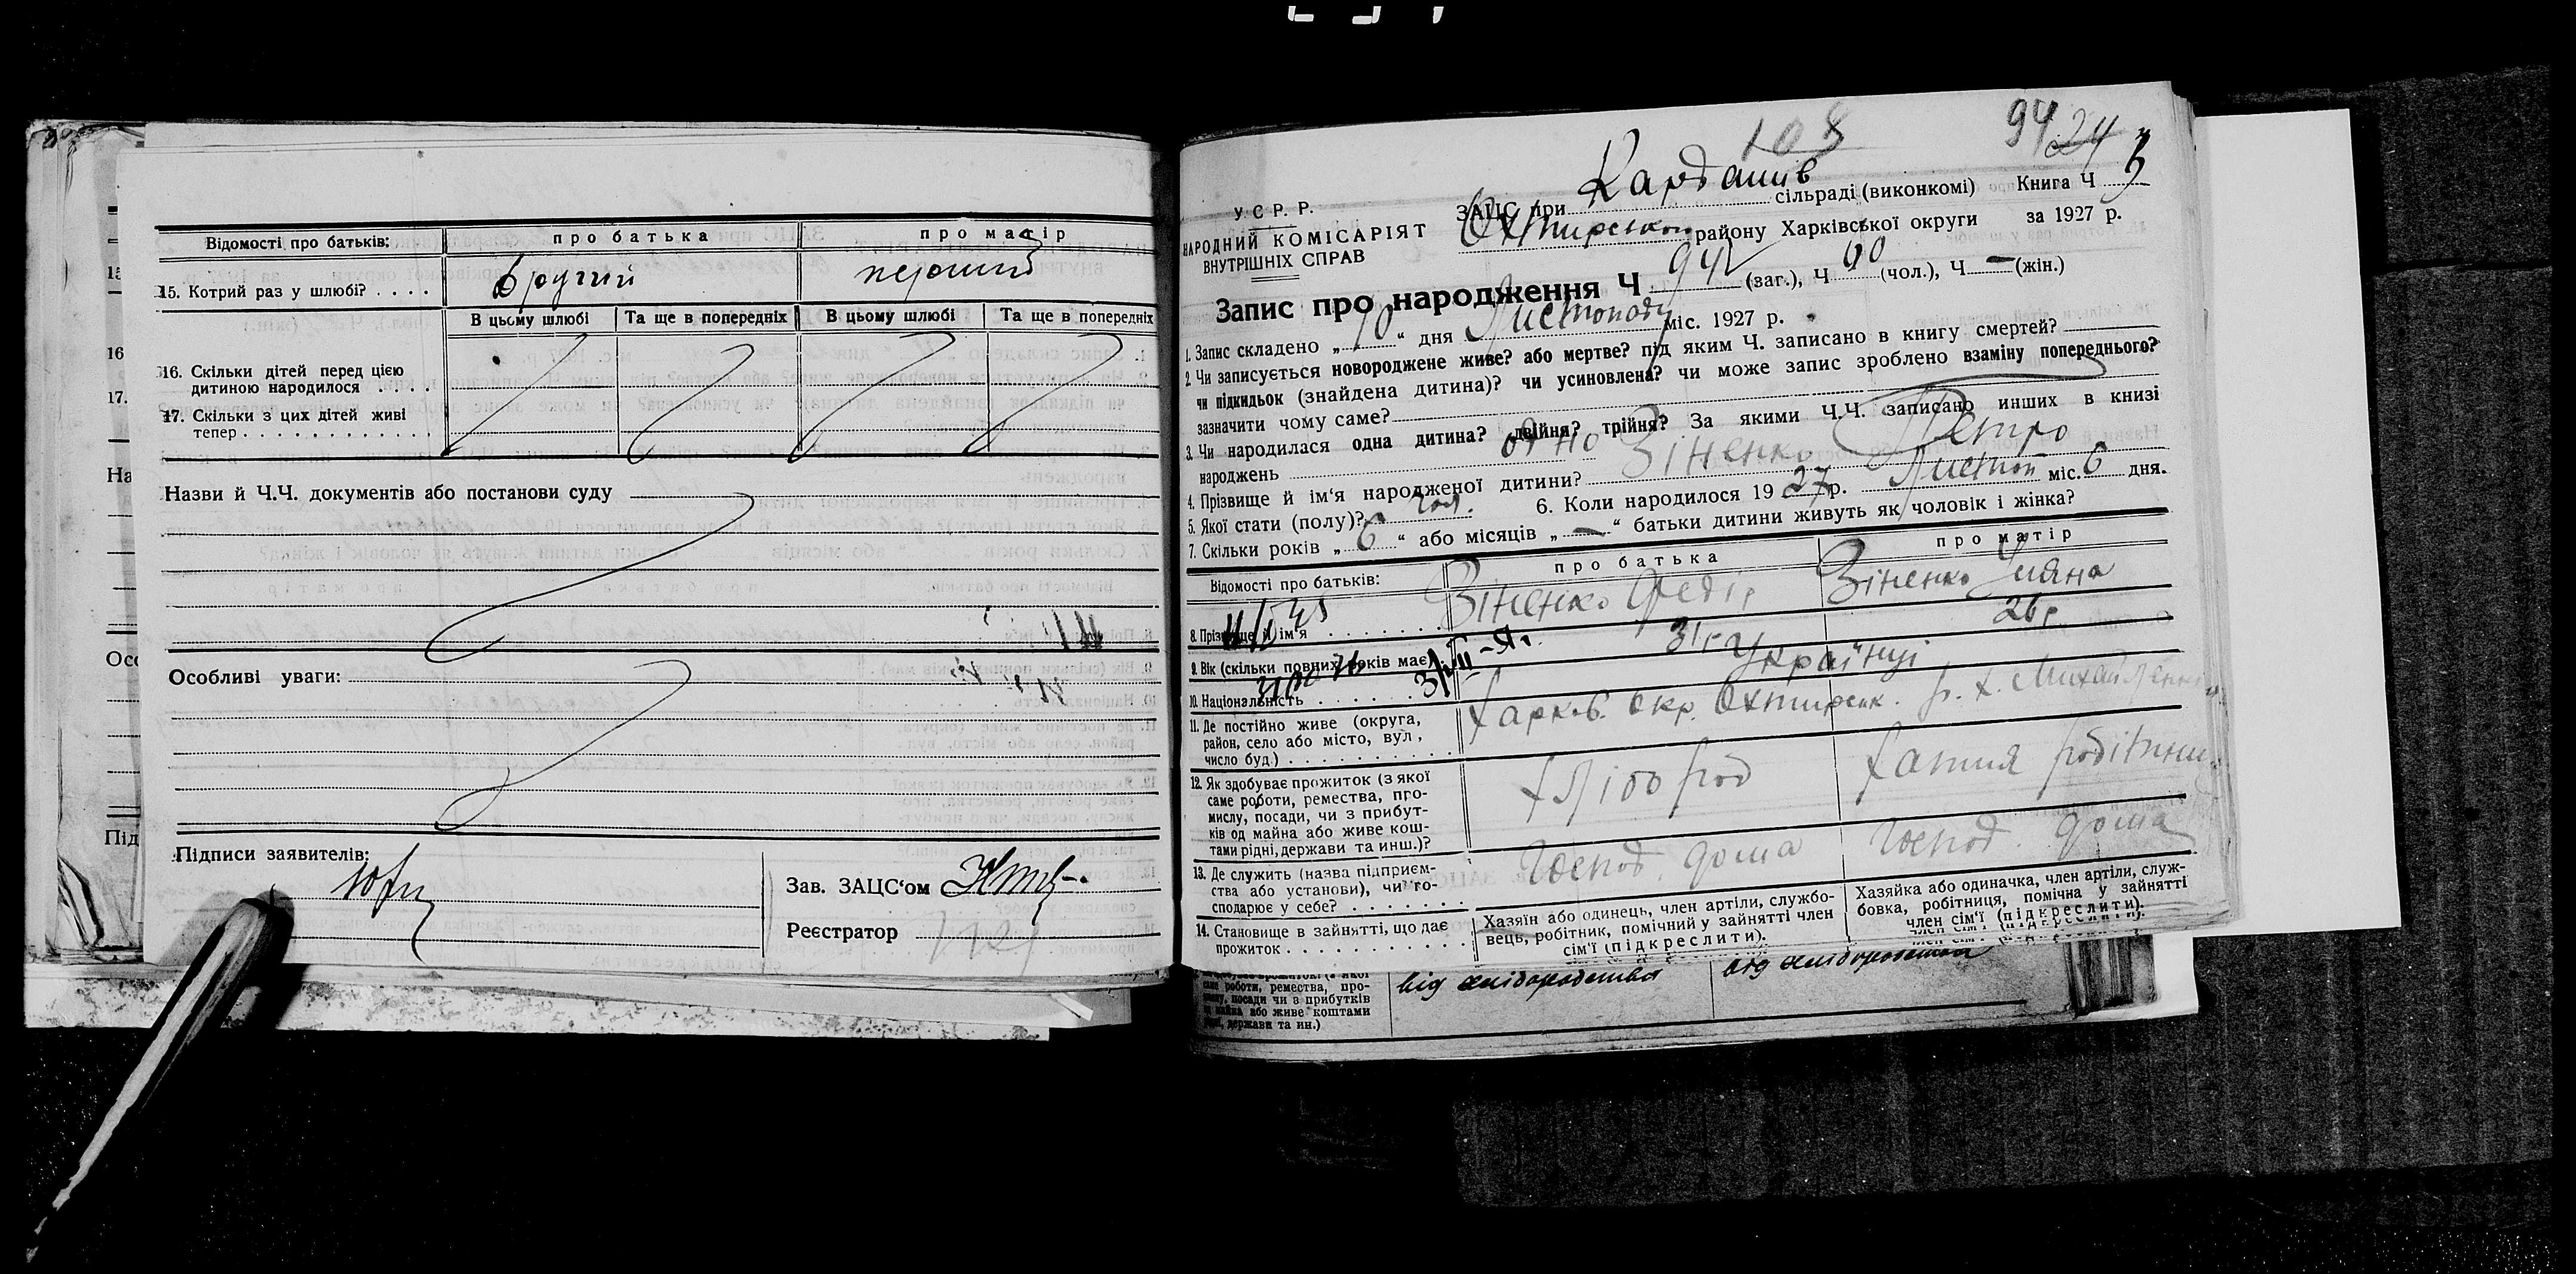 Відомості про батьків: про батька про матір
15. Котрий раз у шлюбі? . . . . другий перший
В цьому шлюбі Та ще в попередніх В цьому шлюбі Та ще в попередніх
16. Скільки дітей перед цією
дитиною народилося . . . .
17. Скільки з цих дітей живі
тепер . . . . . . . . . . . .
Назви й Ч.Ч. документів або постанови суду
Особливі уваги:
Підписи заявителів:
Зав. ЗАЦС‘ом
Реєстратор
108
94 24
У.С.Р.Р.
НАРОДНИЙ КОМІСАРІЯТ
ВНУТРІШНІХ СПРАВ
ЗАЦС при Кардашів сільраді (виконкомі) Книга Ч 3
Охтирському району Харківської округи за 1927 р.
Запис про народження Ч 94 (заг.), Ч 60 (чол.), Ч — (жін.)
1. Запис складено „ 10 “ дня Листопаду міс. 1927 р.
2. Чи записується новороджене живе? або мертве? під яким Ч. записано в книгу смертей?
чи підкидьок (знайдена дитина)? чи усиновлена? чи може запис зроблено взаміну попереднього?
зазначити чому саме?
3. Чи народилася одна дитина? двійня? трійня? За якими Ч.Ч. записано инших в книзі
народжень одно
4. Прізвище й ім‘я народженої дитини? Зіненко Петро
5. Якої стати (полу)? чол. 6. Коли народилося 19 27 р. Листоп міс. 6 дня.
7. Скільки років „ 6 “ або місяців „ — “ батьки дитини живуть як чоловік і жінка?
Відомості про батьків: про батька про матір
8. Прізвище й ім‘я . . . . . . . Зіненко Федір Зіненко Уляна
9. Вік (скільки повних років має) 31 г 26 г
10. Національність . . . . . . Українці
11. Де постійно живе (округа,
район, село або місто, вул.,
число буд.) . . . . . . . . . . Харків. окр. Охтирськ. р. х. Михайленків
12. Як здобуває прожиток (з якої
саме роботи, ремества, про-
мислу, посади, чи з прибут-
ків од майна або живе кош-
тами рідні, держави та инш.)? хліб род хатня робітниц
13. Де служить (назва підприєм-
ства або установи), чи го-
сподарює у себе? . . . . . . . Господ. дома Господ. дома
14. Становище в зайнятті, що дає
прожиток . . . . . . . . . . . .
Хазяїн або одинець, член артіли, службо-
вець, робітник, помічний у зайнятті член
сім‘ї (підкреслити).
Хазяйка або одиначка, член артіли, служ-
бовка, робітниця, помічна у зайнятті
член сім‘ї (підкреслити).
саме роботи, ремества, про-
мислу, посади чи з прибутків
від майна або живе коштами
рідні, держави та ин.)
від хліборобства від хліборобства